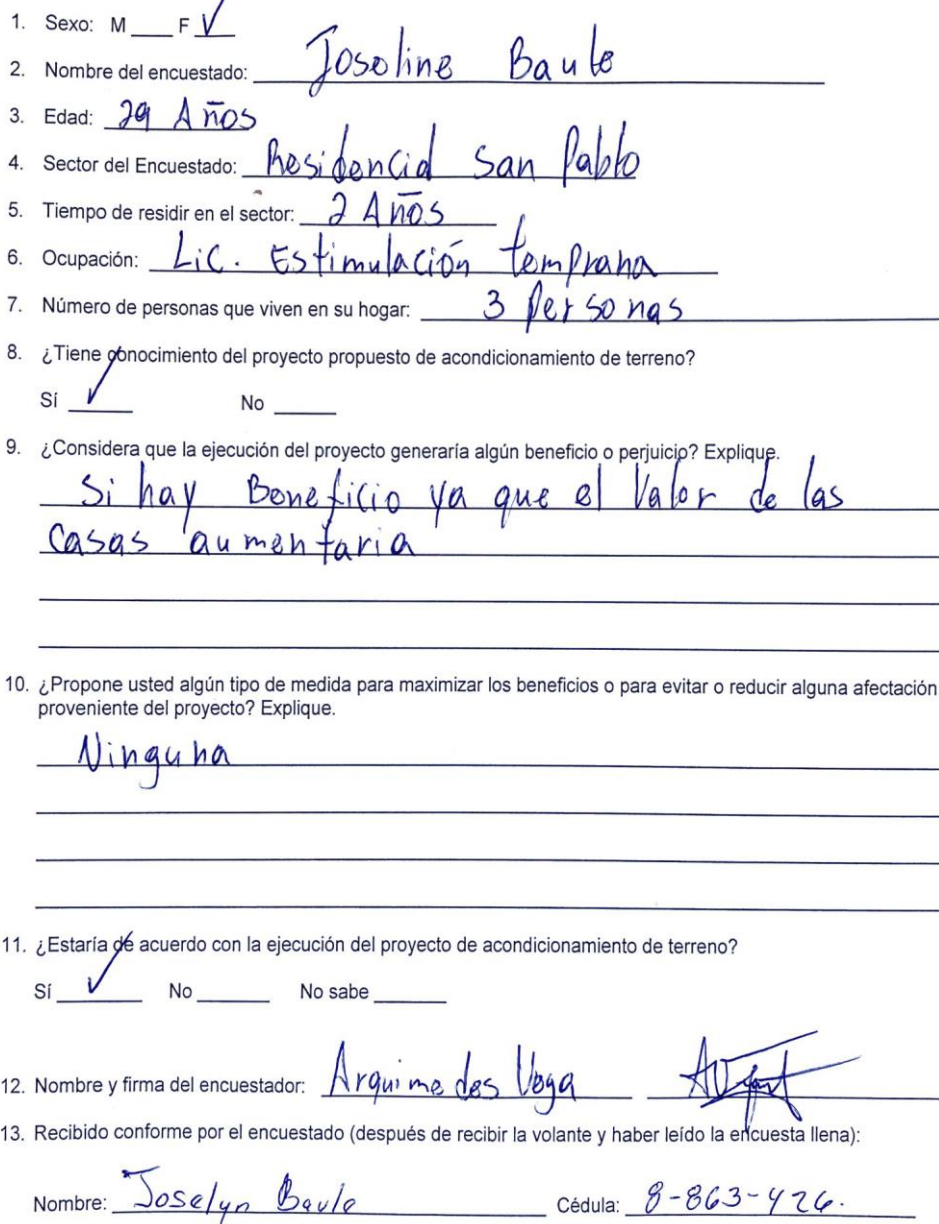 1. Sexo: M ____ F √
2. Nombre del encuestado: Joseline Baule
3. Edad: 29 Años
4. Sector del Encuestado: Residencial San Pablo
5. Tiempo de residir en el sector: 2 Años
6. Ocupación: Lic. Estimulación temprana
7. Número de personas que viven en su hogar: 3 Personas
8. ¿Tiene conocimiento del proyecto propuesto de acondicionamiento de terreno?
Sí √ No ____
9. ¿Considera que la ejecución del proyecto generaría algún beneficio o perjuicio? Explique.
Si hay Beneficio ya que el Valor de las
Casas aumentaria
10. ¿Propone usted algún tipo de medida para maximizar los beneficios o para evitar o reducir alguna afectación
proveniente del proyecto? Explique.
Ninguna
11. ¿Estaría de acuerdo con la ejecución del proyecto de acondicionamiento de terreno?
Sí √ No ____ No sabe ____
12. Nombre y firma del encuestador: Arquimedes Vega
13. Recibido conforme por el encuestado (después de recibir la volante y haber leído la encuesta llena):
Nombre: Joselyn Baule Cédula: 8-863-426.